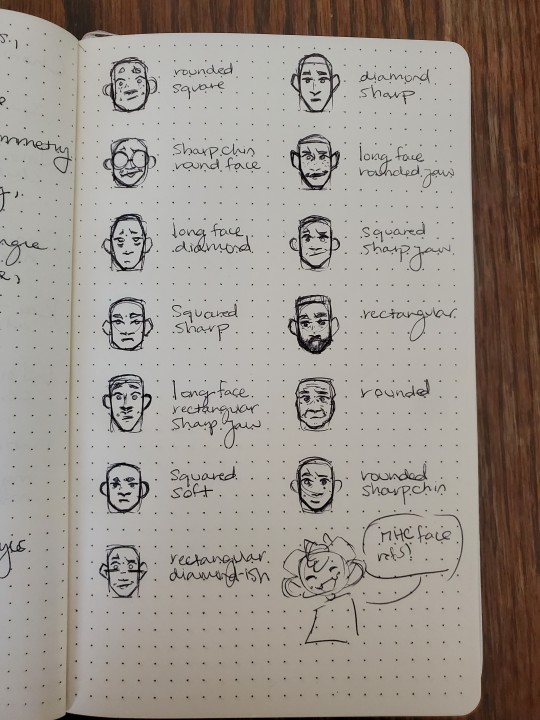 s.,
mmetry
rounded
square
Sharp chin
round face
long face
diamond
Squared
sharp
long face
rectangular
sharp jaw
Squared
soft
rectangular
diamond-ish
diamond
sharp
long face
rounded jaw
Squared
sharp jaw
rectangular
rounded
rounded
sharp chin
face
refs!